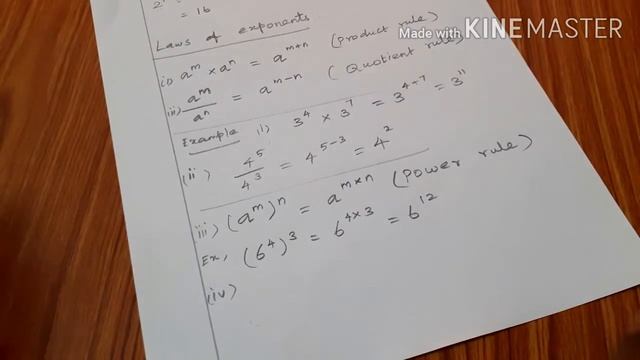 2
= 16
Laws of exponents
Made with KINEMASTER
(i) a^m × a^n = a^{m+n} (Product rule)
ii) a^m / a^n = a^{m-n} (Quotient rule)
Example (i) 3^4 × 3^7 = 3^{4+7} = 3^{11}
(ii) 4^5 / 4^3 = 4^{5-3} = 4^2
iii) (a^m)^n = a^{m×n} (Power rule)
Ex, (6^4)^3 = 6^{4×3} = 6^{12}
(iv)